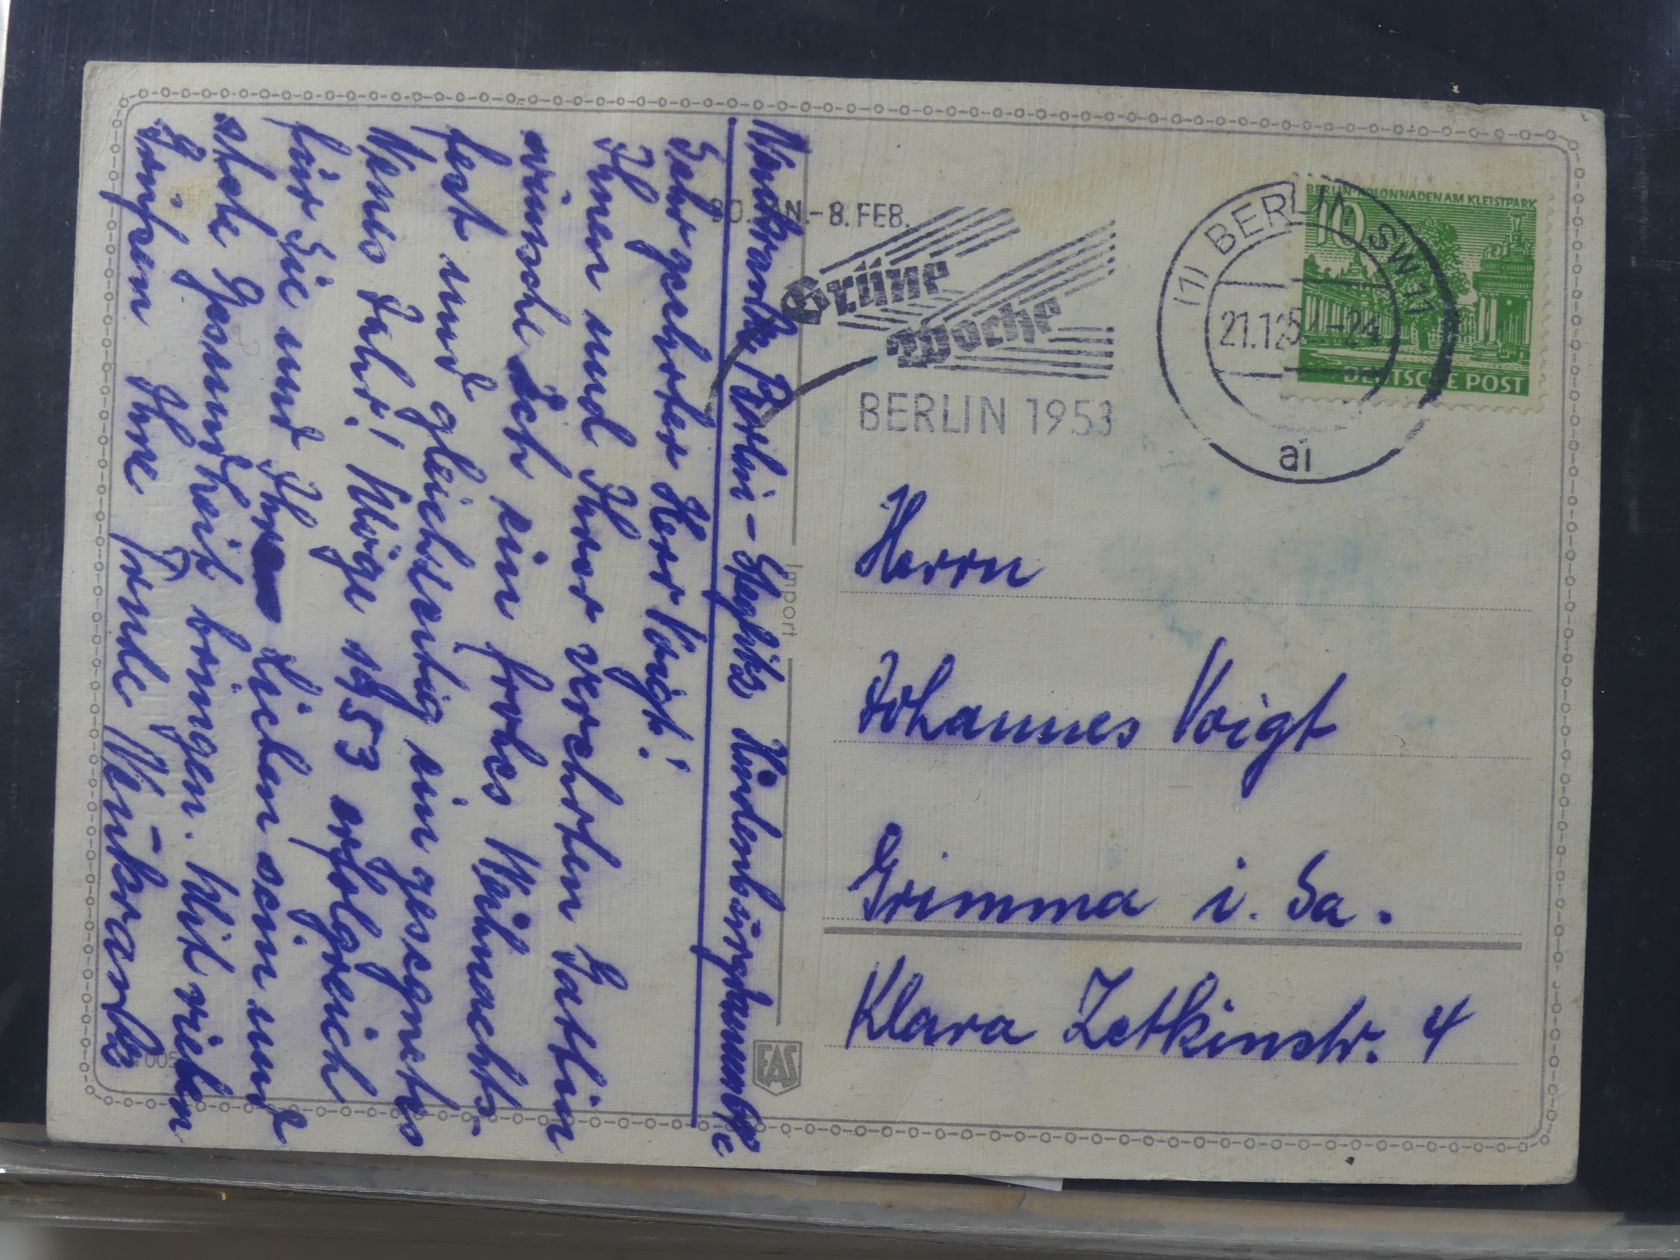 Weinkrantz, Berlin-Steglitz Hindenburgdamm
Sehr geehrter Herr Voigt!
Ihnen und Ihrer verehrten Gattin
wünsche ich ein frohes Weihnachts-
fest und gleichzeitig ein gesegnetes
Neues Jahr! Möge 1953 erfolgreich
für Sie und Ihre Lieben sein und
stets Gesundheit bringen. Mit vielen
Grüßen Ihre
-8. FEB.
Grüne
Woche
BERLIN 1953
(1) BERLIN SW 11
21.12.5 -24
ai
BERLIN · KOLONNADEN AM KLEISTPARK
10
DEUTSCHE POST
Import
EAS
Herrn
Johannes Voigt
Grimma i. Sa.
Klara Zetkinstr. 4